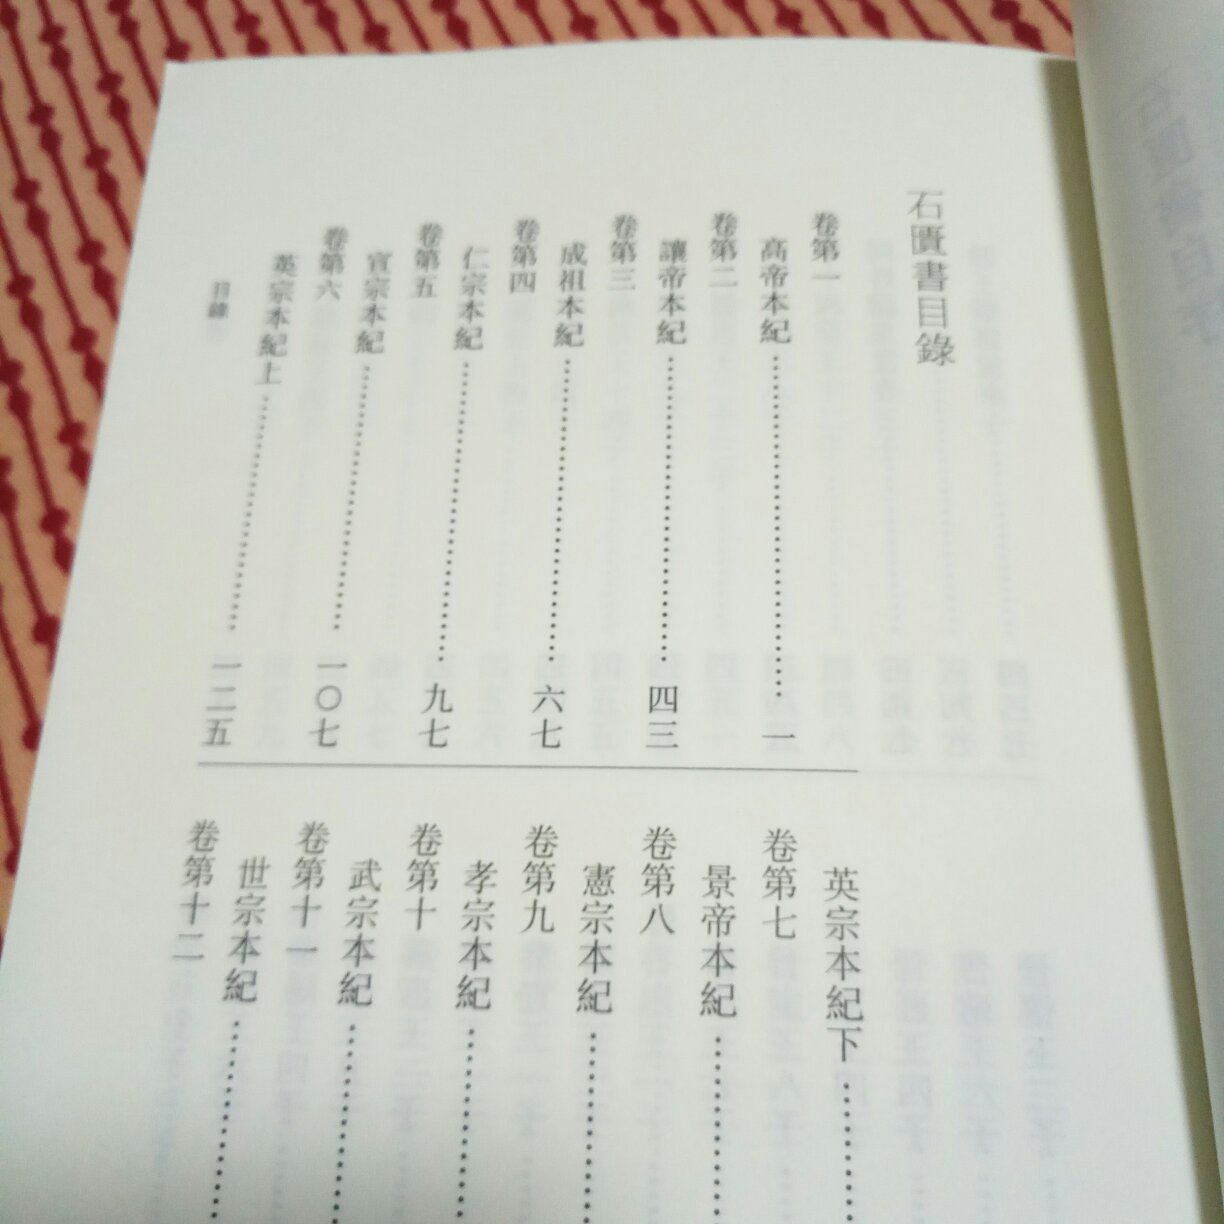 石匱書目錄
卷第一
高帝本紀……………一
卷第二
讓帝本紀……………四三
卷第三
成祖本紀……………六七
卷第四
仁宗本紀……………九七
卷第五
宣宗本紀……………一〇七
卷第六
英宗本紀上……………一二五
英宗本紀下……………
卷第七
景帝本紀……………
卷第八
憲宗本紀……………
卷第九
孝宗本紀……………
卷第十
武宗本紀……………
卷第十一
世宗本紀……………
卷第十二
目錄